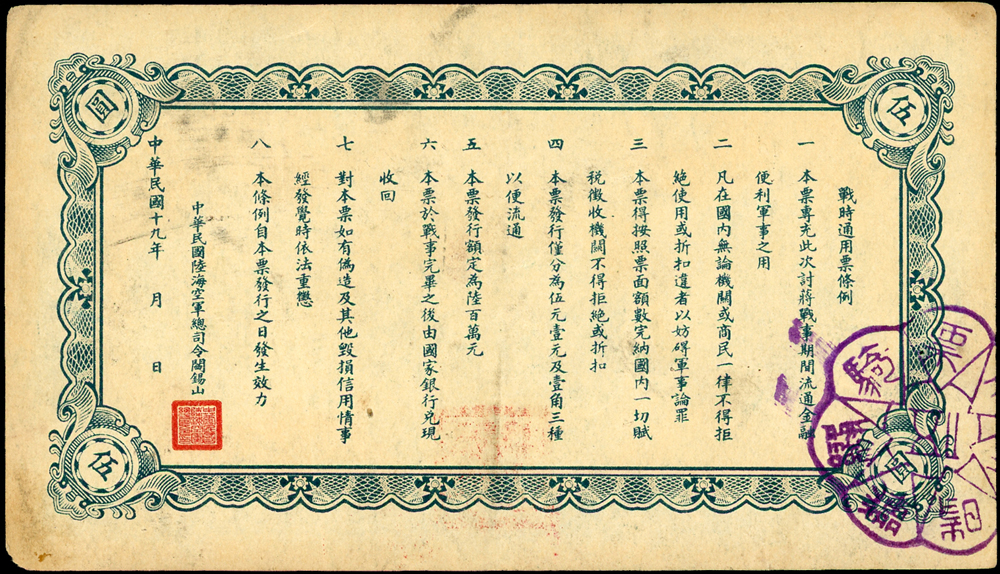 伍
圓
戰時通用票條例
一 本票專充此次討蔣戰事期間流通金融
便利軍事之用
二 凡在國內無論機關或商民一律不得拒
絕使用或折扣違者以妨碍軍事論罪
三 本票得按照票面額數完納國內一切賦
稅徵收機關不得拒絕或折扣
四 本票發行僅分為伍元壹元及壹角三種
以便流通
五 本票發行額定為陸百萬元
六 本票於戰事完畢之後由國家銀行兌現
收回
七 對本票如有偽造及其他毀損信用情事
經發覺時依法重懲
八 本條例自本票發行之日發生效力
中華民國陸海空軍總司令閻錫山
中華民國十九年 月 日
圓
伍
騎
票